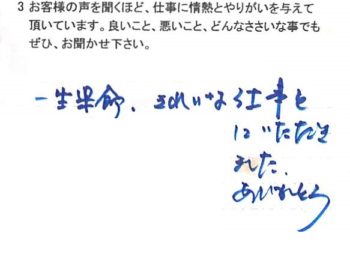 3 お客様の声を聞くほど、仕事に情熱とやりがいを与えて
頂いています。良いこと、悪いこと、どんなささいな事でも
ぜひ、お聞かせ下さい。
一生懸命、きれいな仕事を
していただき
ました。
ありがとう